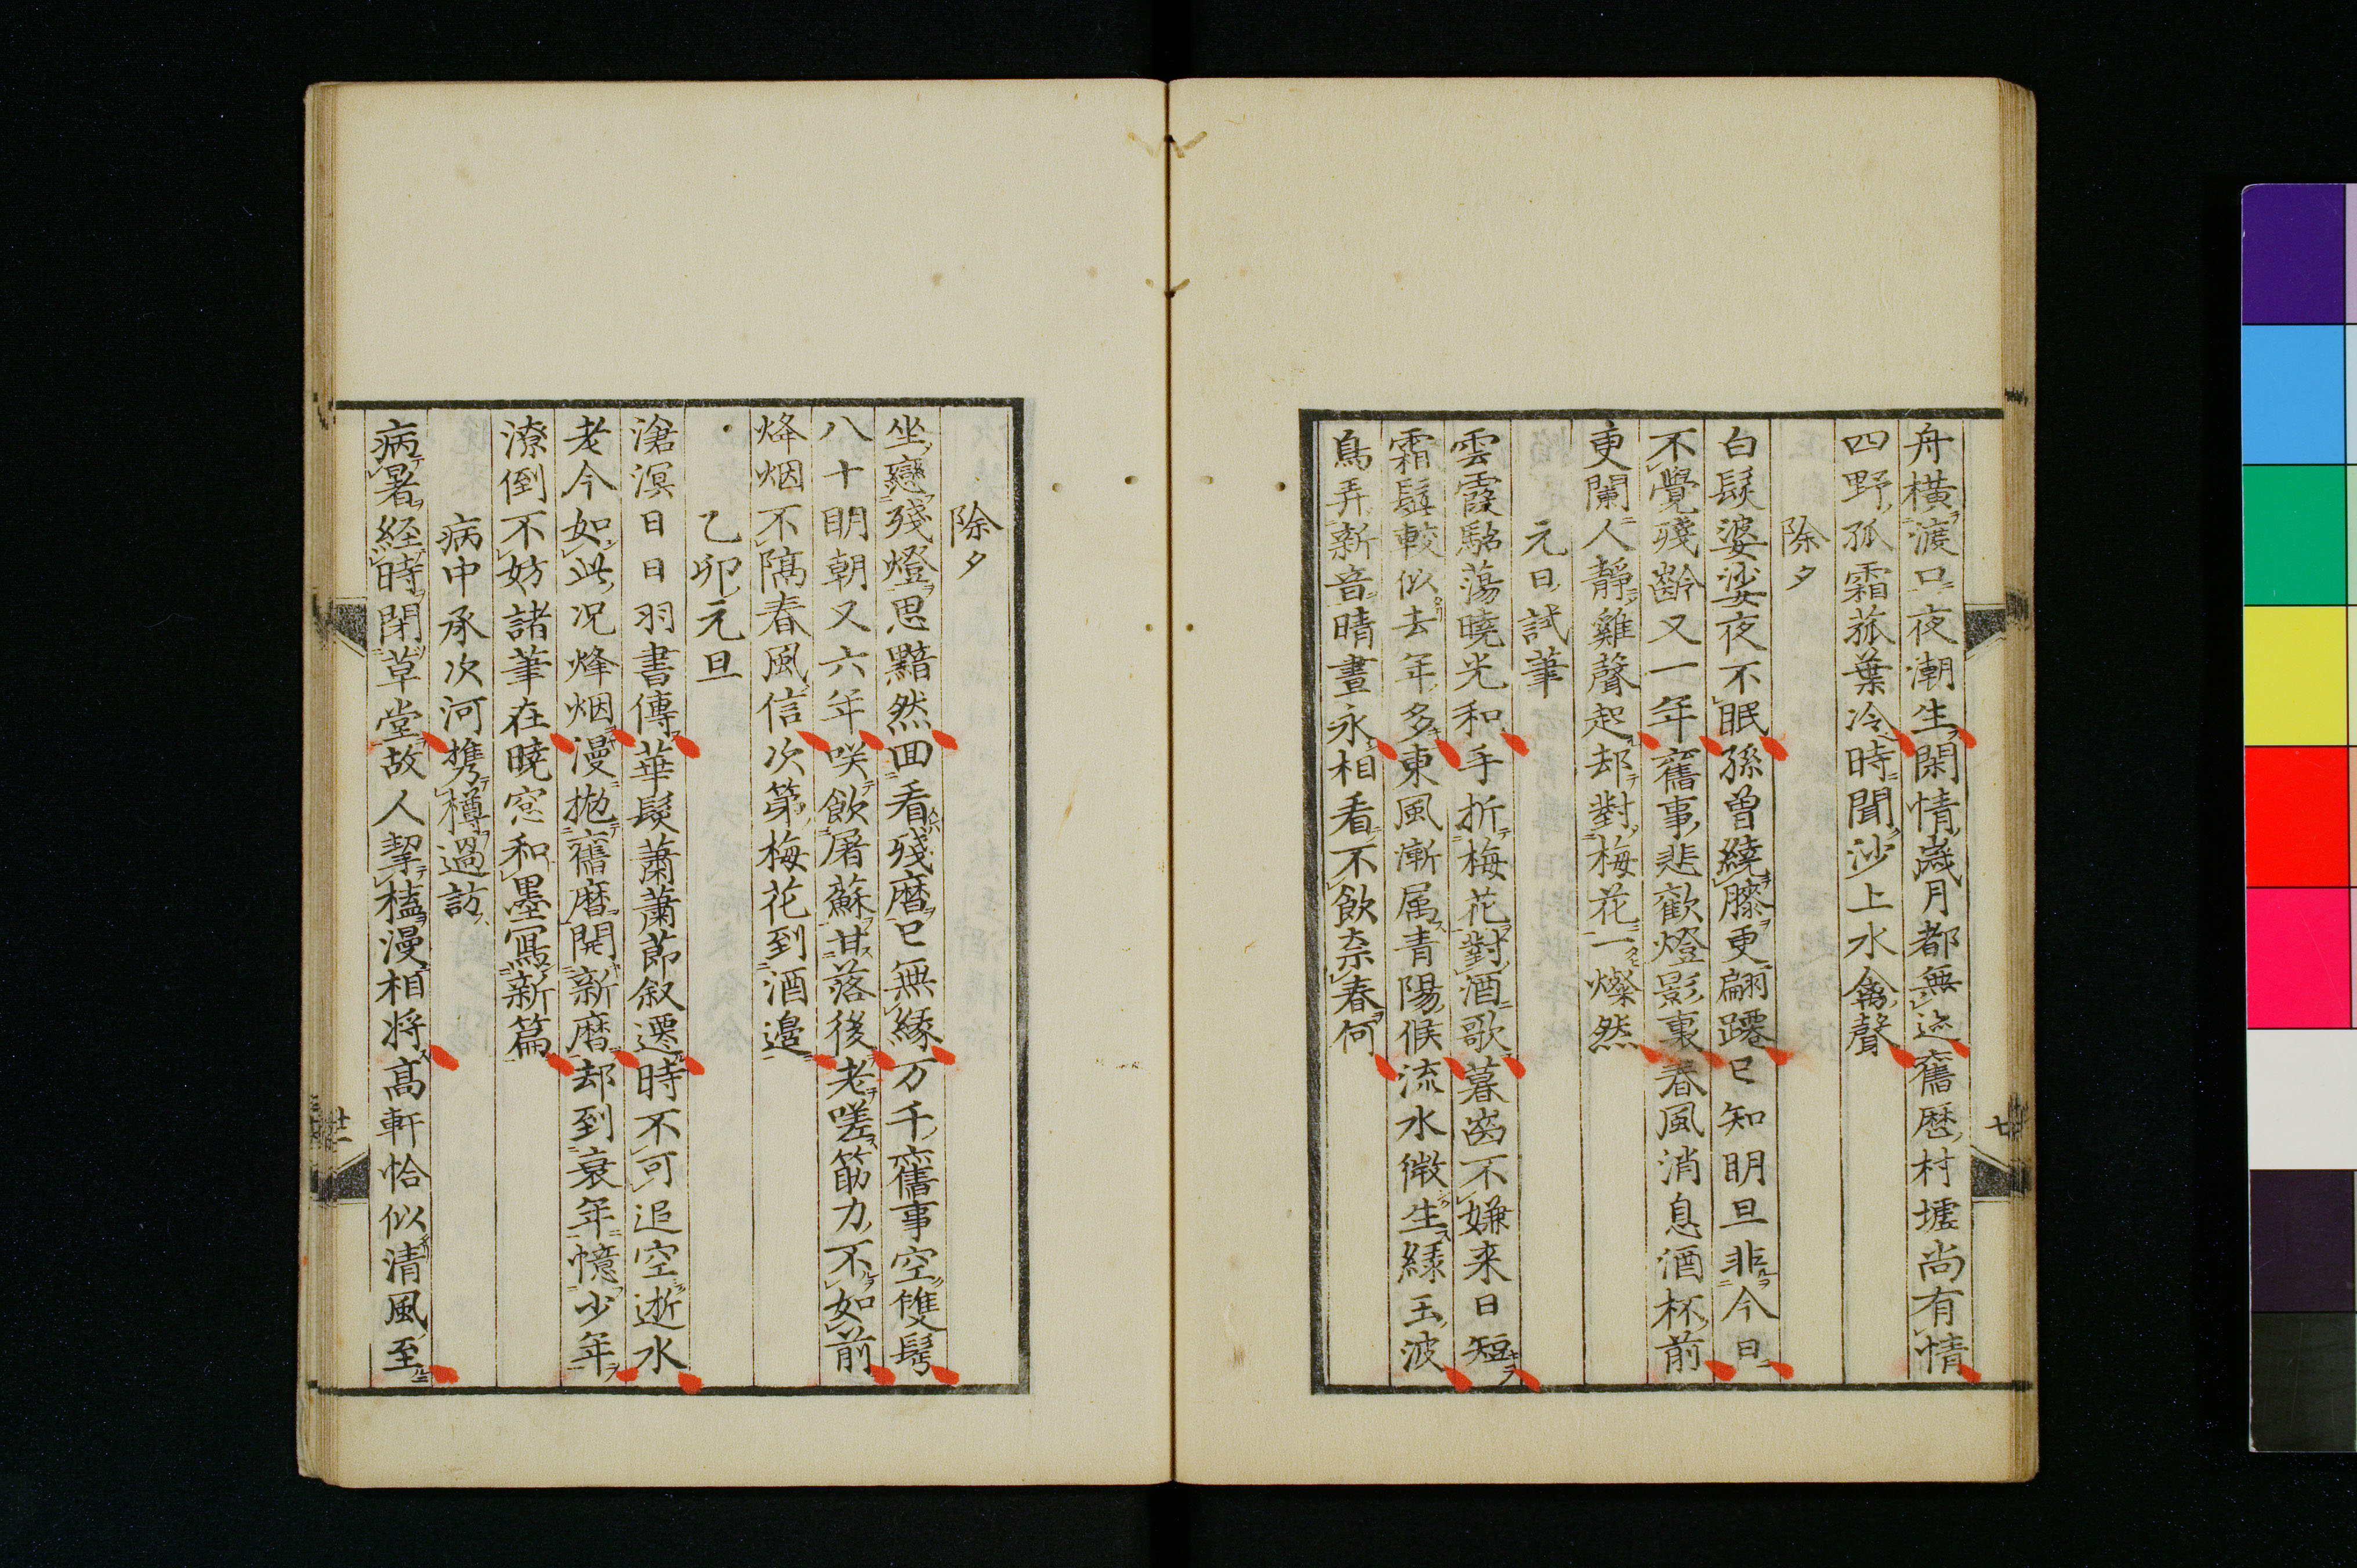 舟橫渡口夜潮生閑情歲月都無迹舊曆村墟尚有情
四野孤霜菰葉冷時聞沙上水禽聲
除夕
白髮婆娑夜不眠孫曾繞膝更翩躚已知明旦非今日
不覺殘齡又一年舊事悲歡燈影裏春風消息酒杯前
更闌人靜雞聲起却對梅花一燦然
元日試筆
雲霞駘蕩曉光和手折梅花對酒歌暮齒不嫌来日短
霜鬚較似去年多東風漸属青陽候流水微生綠玉波
鳥弄新音晴晝永相看不飲奈春何
除夕
坐戀殘燈思黯然回看殘曆已無緣万千舊事空雙髩
八十明朝又六年咲飲屠蘇甘落後老嗟筋力不如前
烽烟不隔春風信次第梅花到酒邉
乙卯元旦
滄溟日日羽書傳華髮蕭蕭莭叙遷時不可追空逝水
老今如此况烽烟漫拋舊曆開新曆却到衰年憶少年
潦倒不妨諸筆在曉窓和墨寫新篇
病中承次河携樽過訪
病暑経時閉草堂故人挈榼漫相将高軒恰似清風至
七
廿二